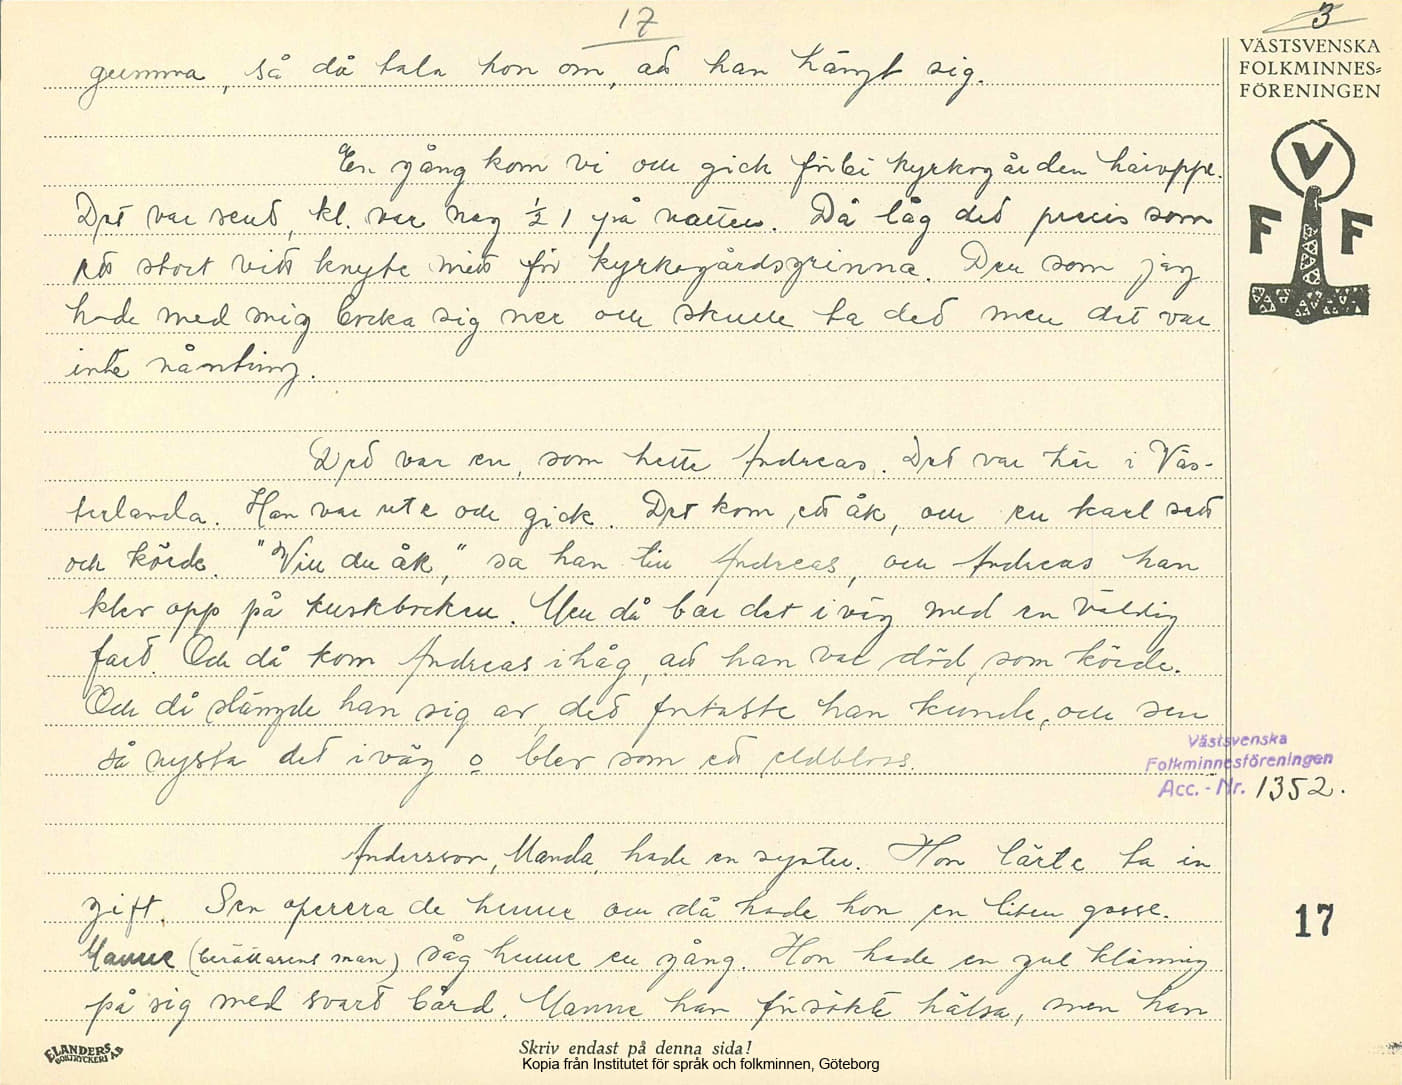 17
3
VÄSTSVENSKA
FOLKMINNES=
FÖRENINGEN
V
F F
gumma, så då tala hon om, att han hängt sig.
En gång kom vi och gick förbi kyrkogården häroppe.
Det var sent, kl. var nog ½ 1 på natten. Då låg det precis som
ett stort vitt knyte mitt för kyrkogårdsgrinna. Den som jag
hade med mig bocka sig ner och skulle ta det men det var
inte nånting.
Det var en, som hette Andreas. Det var här i Väs-
terlanda. Han var ute och gick. Det kom ett åk, och en karl satt
och körde. "Vill du åk," sa han till Andreas, och Andreas han
klev opp på kuskbocken. Men då bar det iväg med en väldig
fart. Och då kom Andreas ihåg, att han var död, som körde.
Och då slängde han sig av, det fortaste han kunde, och sen
så nysta det iväg o blev som ett eldbloss.
Västsvenska
Folkminnesföreningen
Acc. - Nr. 1352.
Andersson, Manda, hade en syster. Hon lärte ta in
gift. Sen operera de henne och då hade hon en liten gosse.
17
Manne (berätterens man) såg henne en gång. Hon hade en gul klänning
på sig med svart bård. Manne han försökte hälsa, men han
ELANDERS
BOKTRYCKERI AB
Skriv endast på denna sida!
Kopia från Institutet för språk och folkminnen, Göteborg